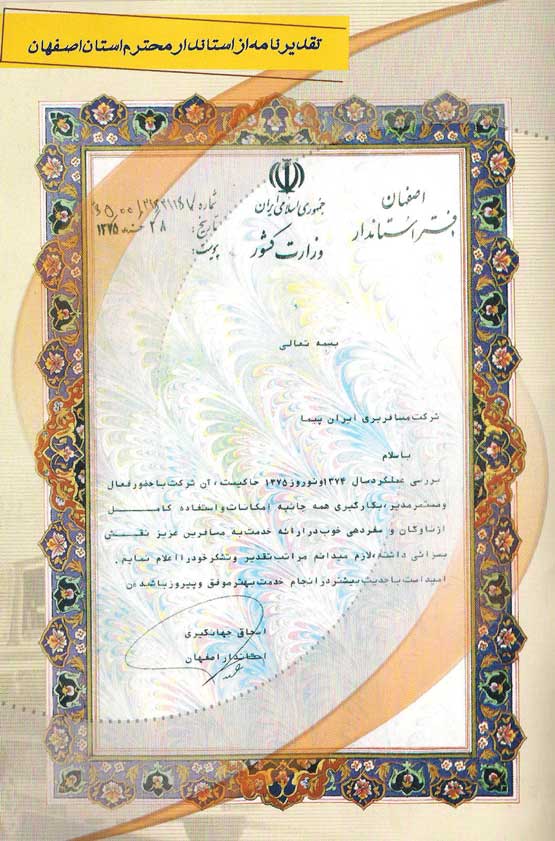 تقدیرنامه از استاندار محترم استان اصفهان
جمهوری اسلامی ایران
وزارت کشور
اصفهان
دفتر استاندار
شماره
تاریخ: ۲۸ ۱۳۷۵
پیوست:
بسمه تعالی
شرکت مسافربری ایران پیما
باسلام
بررسی عملکرد سال ۱۳۷۴ و نوروز ۱۳۷۵ حاکیست، آن شرکت با حضور فعال
و مستمر مدیر، بکارگیری همه جانبه امکانات و استفاده کامل
از ناوگان و سفردهی خوب در ارائه خدمت به مسافرین عزیز نقش
بسزائی داشته، لازم میدانم مراتب تقدیر و تشکر خود را اعلام نمایم.
امید است با جدیت بیشتر در انجام خدمت بهتر موفق و پیروز باشید
اسحاق جهانگیری
استاندار اصفهان